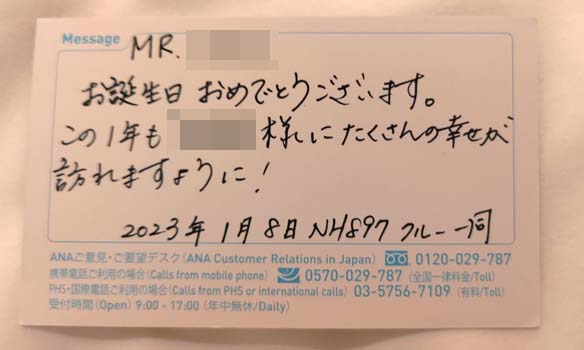 Message
MR.
お誕生日 おめでとうございます。
この1年も 様にたくさんの幸せが
訪れますように!
2023年 1月 8日 NH897 クルー一同
ANAご意見・ご要望デスク(ANA Customer Relations in Japan) 0120-029-787
携帯電話ご利用の場合(Calls from mobile phone) 0570-029-787 (全国一律料金/Toll)
PHS・国際電話ご利用の場合(Calls from PHS or international calls) 03-5756-7109 (有料/Toll)
受付時間(Open) 9:00 - 17:00 (年中無休/Daily)